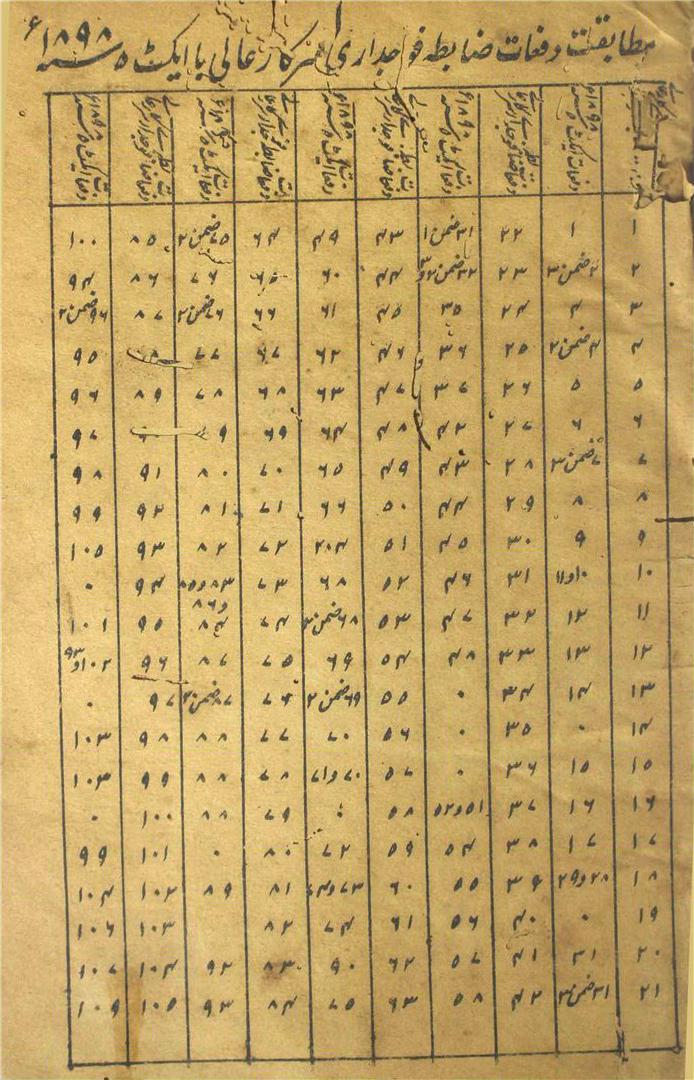 مطابقت دفعات ضابطہ فوجداری سرکار عالی با ایکٹ ۵ سنہ ۱۸۹۸ء
۱ ۱ ۲۲ ۳۱ضمن۱ ۴۳ ۴۹ ۶۴ ۷۵ضمن۲ ۸۵ ۱۰۰
۲ ۲ضمن۳ ۲۳ ۳۲ضمن۲و۳ ۴۴ ۶۰ ۶۵ ۷۶ ۸۶ ۹۴
۳ ۴ ۲۴ ۳۵ ۴۵ ۶۱ ۶۶ ۷۶ضمن۲ ۸۷ ۹۶ضمن۲
۴ ۴ضمن۲ ۲۵ ۳۶ ۴۶ ۶۲ ۶۷ ۷۷ ۹۵
۵ ۵ ۲۶ ۳۷ ۴۷ ۶۳ ۶۸ ۷۸ ۸۹ ۹۶
۶ ۶ ۲۷ ۴۲ ۴۸ ۶۴ ۶۹ ۹۷
۷ ۷ضمن۳ ۲۸ ۴۳ ۴۹ ۶۵ ۷۰ ۸۰ ۹۱ ۹۸
۸ ۸ ۲۹ ۴۴ ۵۰ ۶۶ ۷۱ ۸۱ ۹۲ ۹۹
۹ ۹ ۳۰ ۴۵ ۵۱ ۲۰۴ ۷۲ ۸۲ ۹۳ ۱۰۵
۱۰ ۱۰و۱۱ ۳۱ ۴۶ ۵۲ ۶۸ ۷۳ ۸۳و۸۵و۸۶ ۹۴ ۰
۱۱ ۱۲ ۳۲ ۴۷ ۵۳ ۶۸ضمن۲ ۷۴ ۸۴ ۹۵ ۱۰۱
۱۲ ۱۳ ۳۳ ۴۸ ۵۴ ۶۹ ۷۵ ۸۷ ۹۶ ۱۰۲و۹۳
۱۳ ۱۴ ۳۴ ۰ ۵۵ ۶۹ضمن۲ ۷۶ ۸۷ضمن۲ ۹۷ ۰
۱۴ ۰ ۳۵ ۵۶ ۷۰ ۷۷ ۸۸ ۹۸ ۱۰۳
۱۵ ۱۵ ۳۶ ۰ ۵۷ ۷۰و۷۱ ۷۸ ۸۸ ۹۹ ۱۰۳
۱۶ ۱۶ ۳۷ ۵۱و۵۲ ۵۸ ۰ ۷۹ ۸۸ ۱۰۰ ۰
۱۷ ۱۷ ۳۸ ۵۴ ۵۹ ۷۲ ۸۰ ۰ ۱۰۱ ۹۹
۱۸ ۲۸و۲۹ ۳۹ ۵۵ ۶۰ ۷۳و۷۴ ۸۱ ۸۹ ۱۰۲ ۱۰۴
۱۹ ۰ ۴۰ ۵۶ ۶۱ ۷۴ ۸۲ ۱۰۳ ۱۰۶
۲۰ ۳۱ ۴۱ ۵۷ ۶۲ ۹۰ ۸۳ ۹۲ ۱۰۴ ۱۰۷
۲۱ ۳۱ضمن۳ ۴۲ ۵۸ ۶۳ ۷۵ ۸۴ ۹۳ ۱۰۵ ۱۰۹